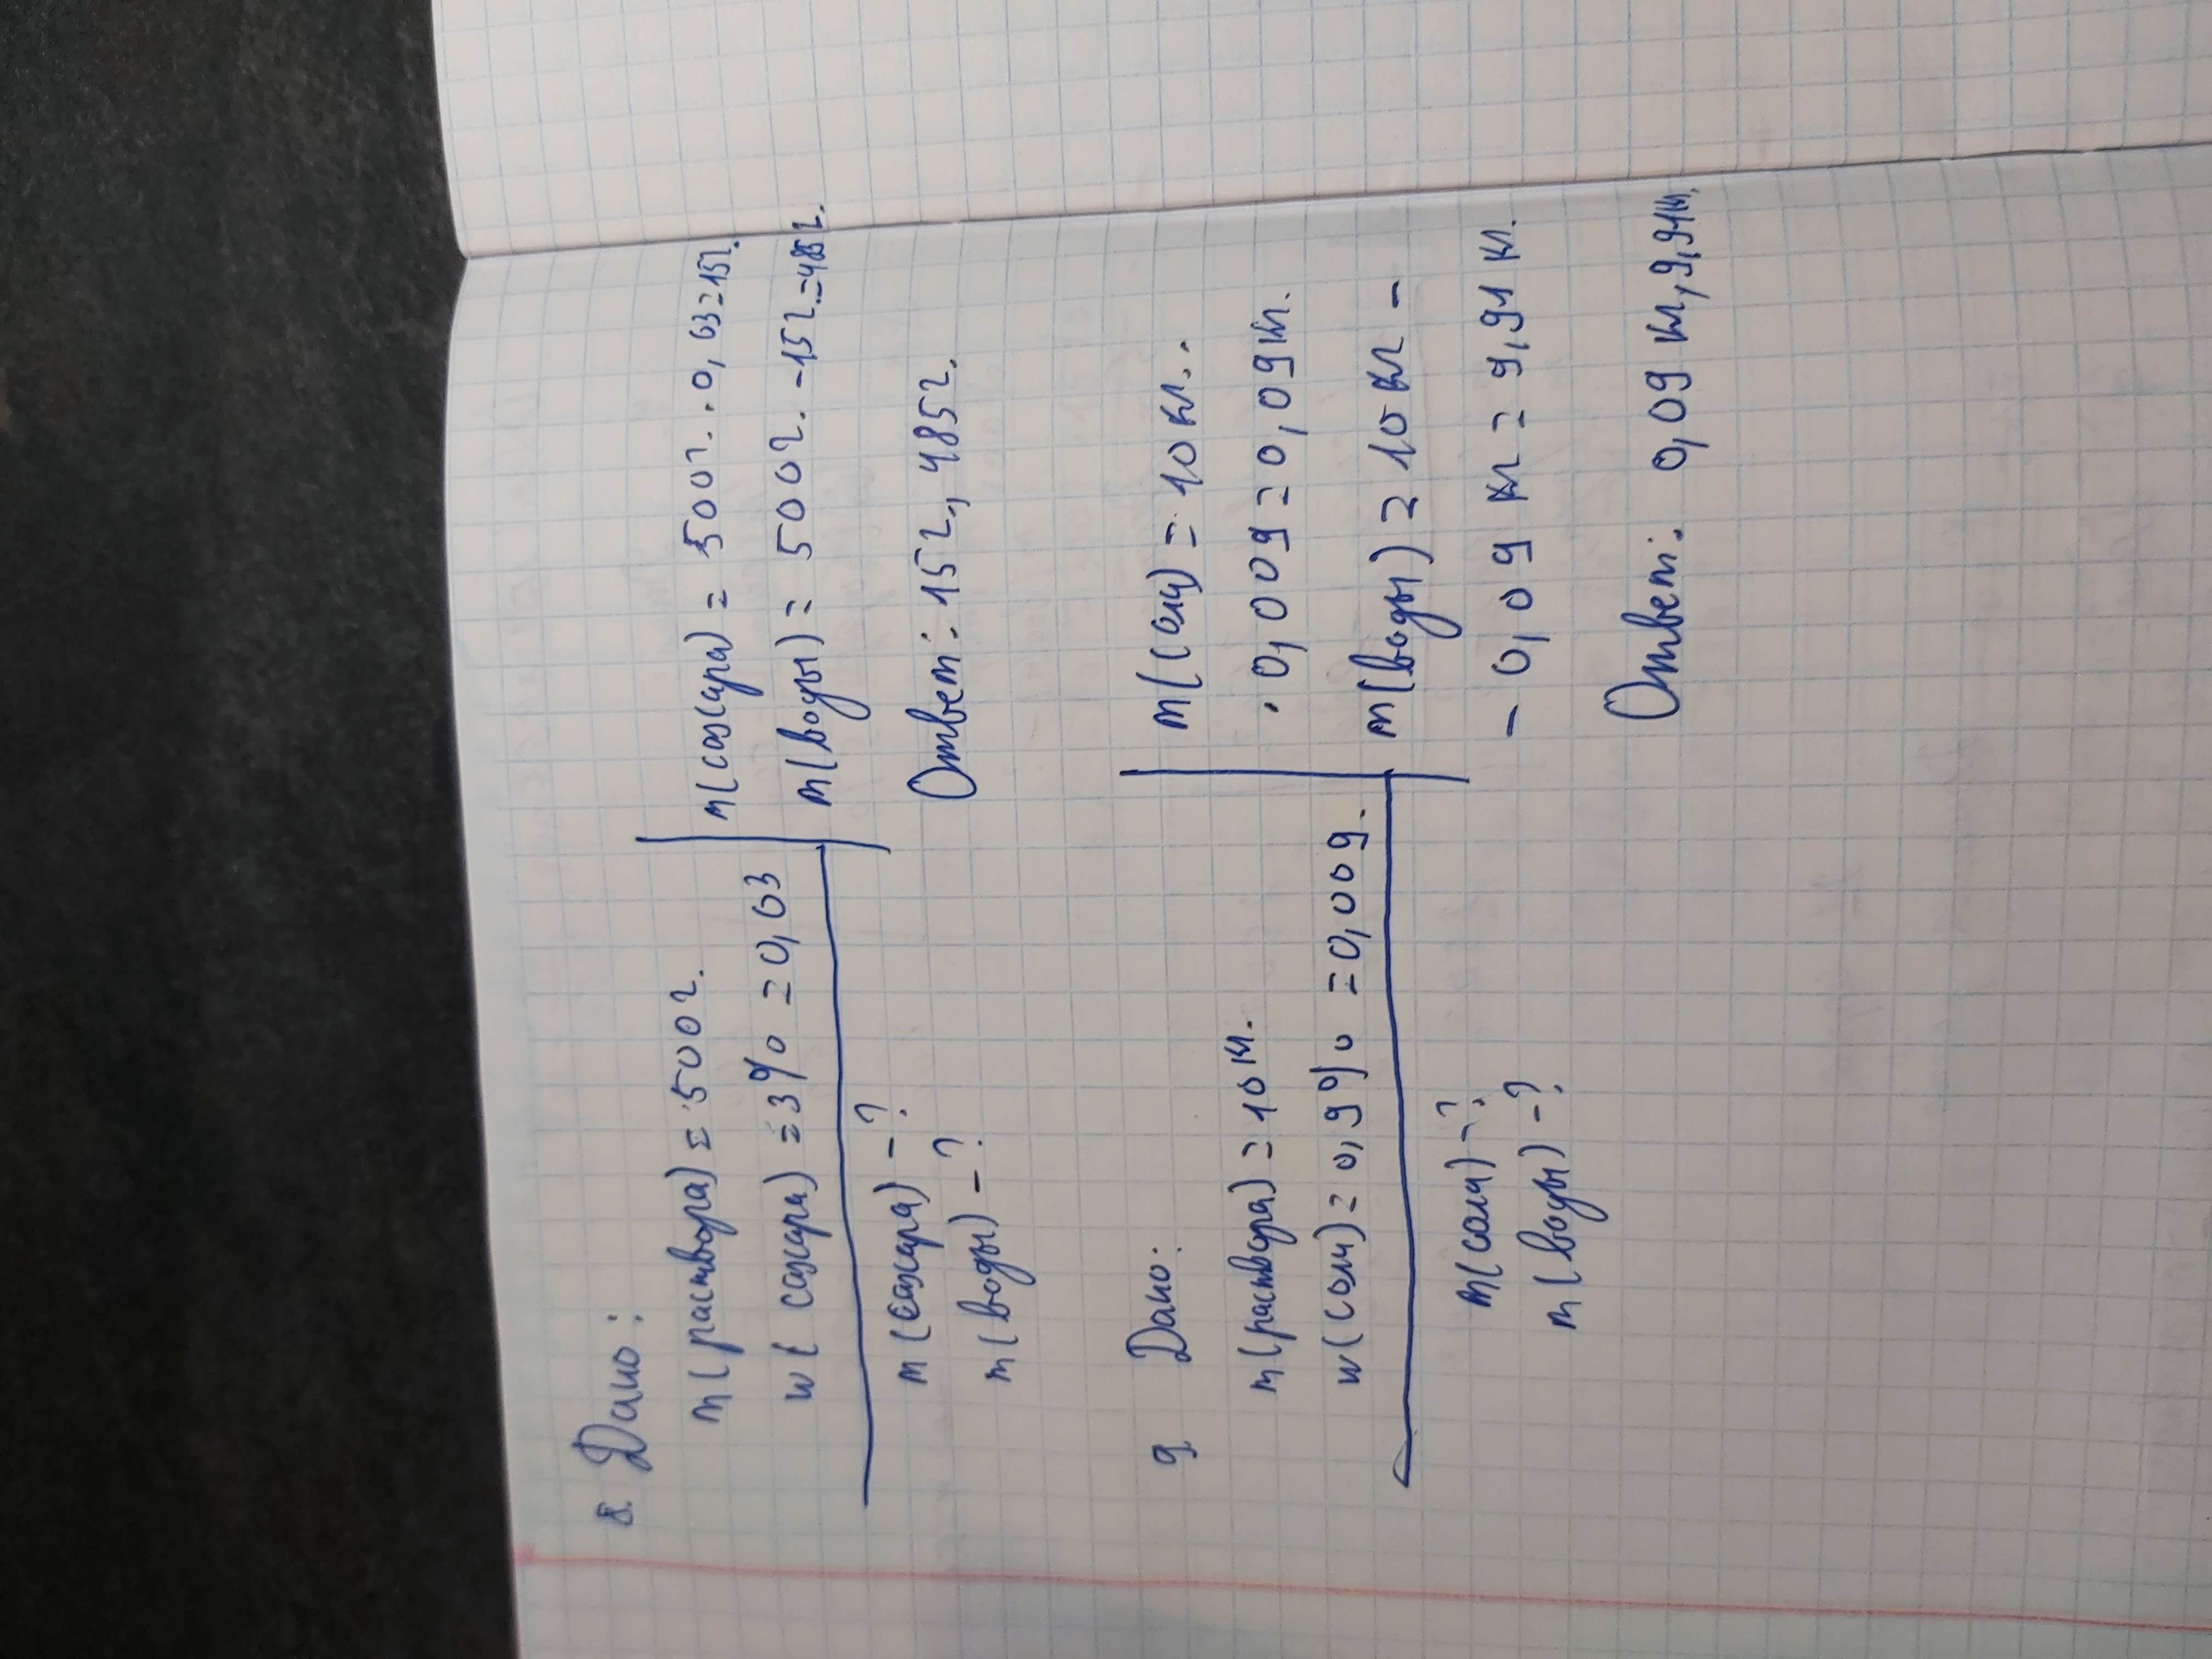 8. Дано:
m(раствора) = 500г.
w( сахара) = 3% = 0,03
m(сахара) - ?
m(воды) - ?
m(сахара) = 500г. · 0,03=15г.
m(воды) = 500г. -15г.=485г.
Ответ: 15г., 485г.
9 Дано:
m(раствора) = 10кг.
w(соли) = 0,9% = 0,009.
m(соли) - ?
m(воды) - ?
m(соли) = 10кг. ·
· 0,009 = 0,09кг.
m(воды) = 10кг -
- 0,09 кг = 9,91 кг.
Ответ: 0,09 кг, 9,91кг.